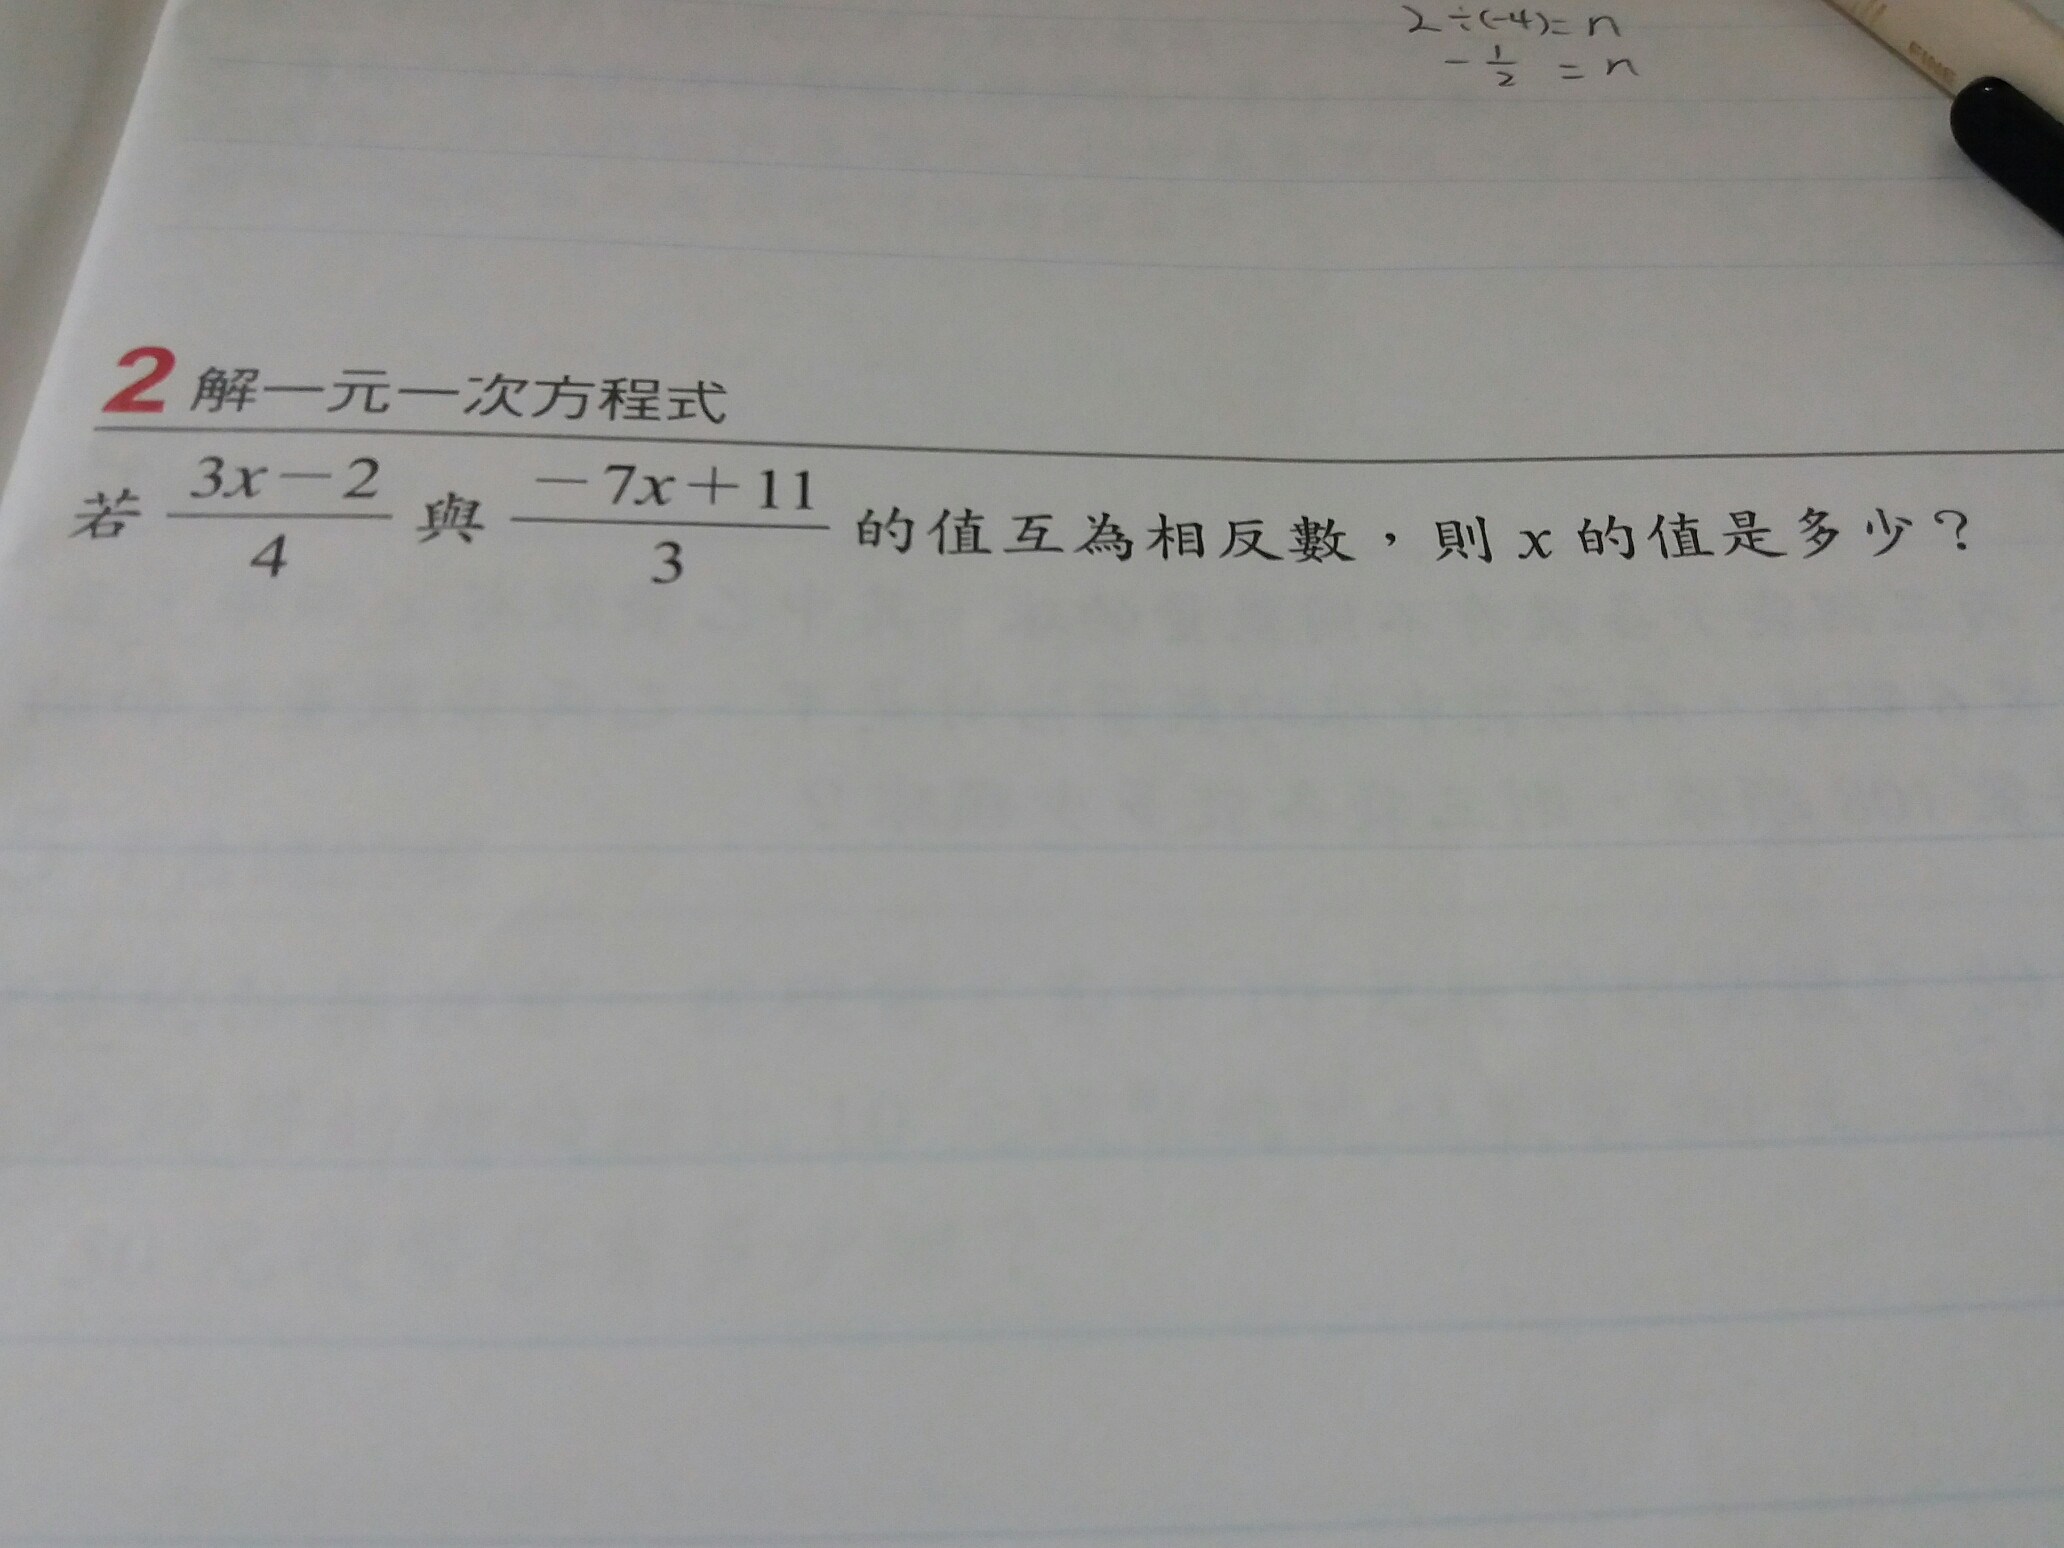 2÷(-4)= n
-1/2 = n
FINE
2 解一元一次方程式
若 (3x-2)/4 與 (-7x+11)/3 的值互為相反數，則 x 的值是多少？